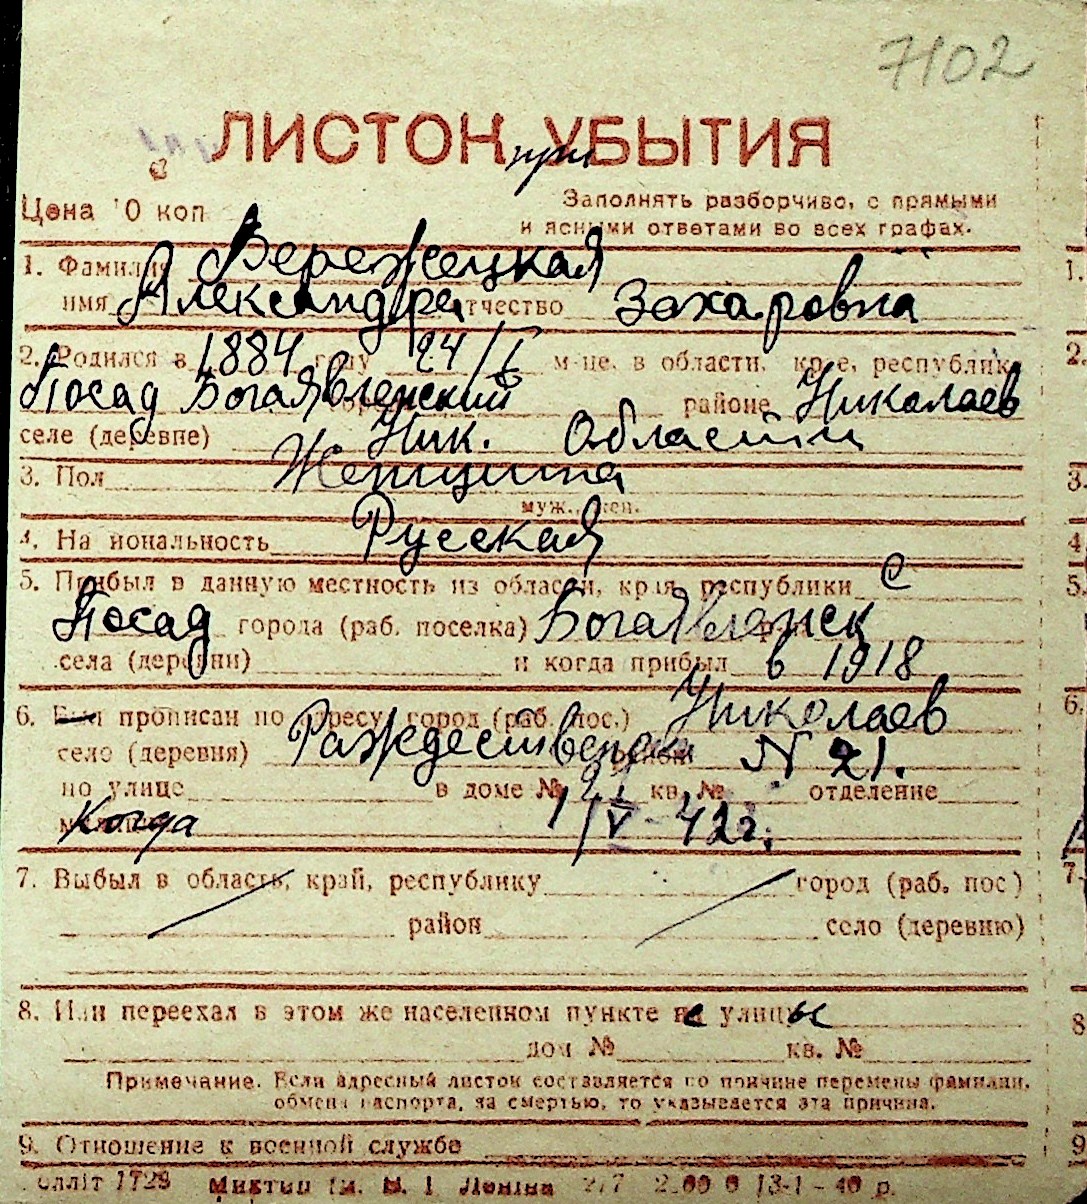 7102
ЛИСТОК УБЫТИЯ
при
Цена 10 коп
Заполнять разборчиво, с прямыми
и ясными ответами во всех графах.
1. Фамилия Бережецкая
имя Александра отчество Захаровна
2. Родился в 1884 году 24/I м-це, в области, крае, республике
Посад Богаявленский районе Николаев
селе (деревне) Ник. Области
3. Пол Женщина
муж., жен.
4. Национальность Русская
5. Прибыл в данную местность из области, края, республики с
Посад города (раб. поселка) Богаявленск
села (деревни) и когда прибыл в 1918
6. Был прописан по адресу, город (раб. пос.) Николаев
село (деревня) Раждественская район N 21.
по улице в доме № 21 кв. № отделение
милиции Когда 1/V-42г.
7. Выбыл в область, край, республику город (раб. пос)
район село (деревню)
8. Или переехал в этом же населенном пункте с улицы
дом № кв. №
Примечание. Если адресный листок составляется по причине перемены фамилии,
обмена паспорта, за смертью, то указывается эта причина.
9. Отношение к военной службе
1729 Леніна 13-1-40 р.